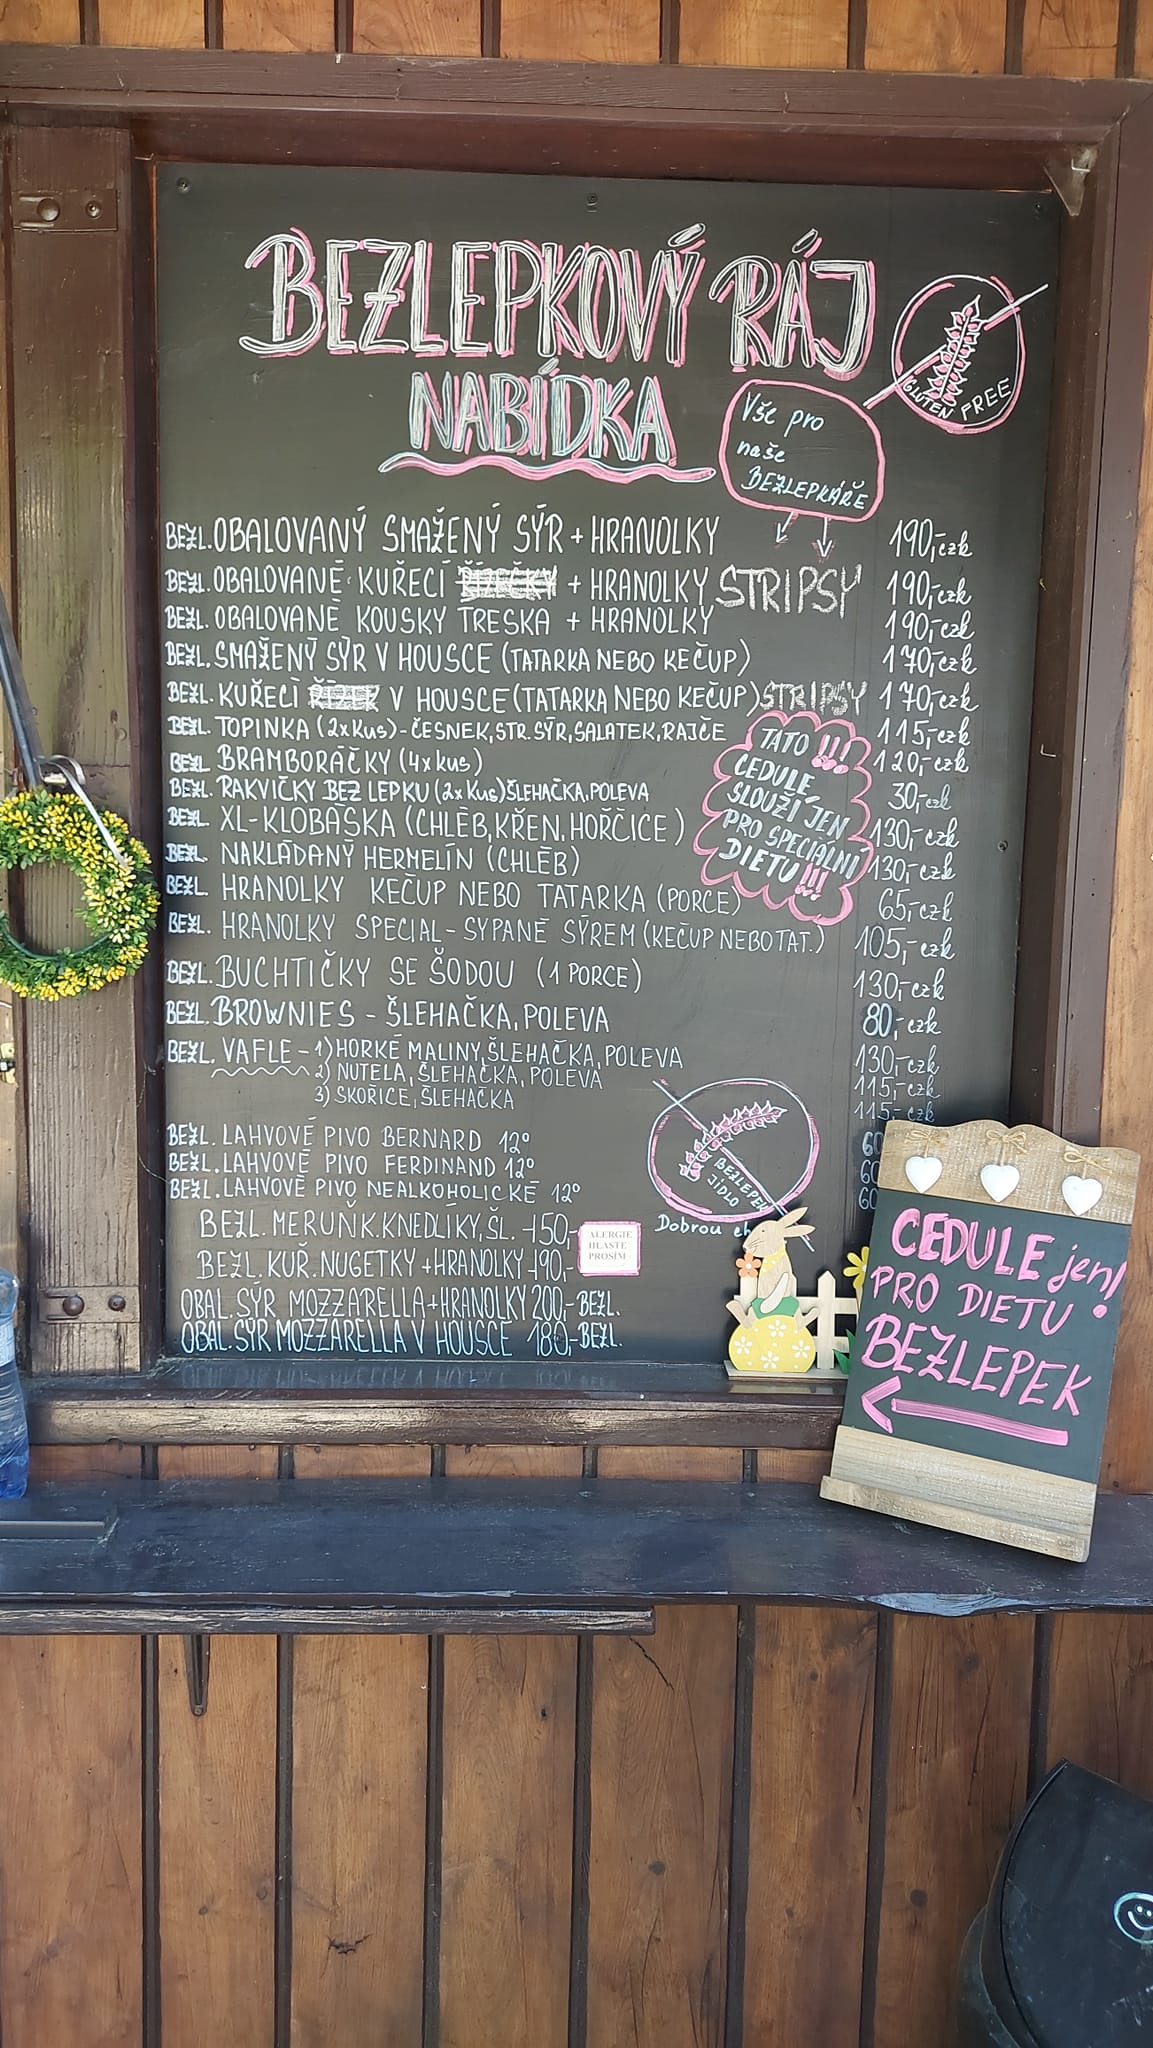 BEZLEPKOVÝ RÁJ
NABÍDKA
GLUTEN FREE
Vše pro
naše
BEZLEPKÁŘE
BEZL. OBALOVANÝ SMAŽENÝ SÝR + HRANOLKY 190,-czk
BEZL. OBALOVANÉ KUŘECÍ + HRANOLKY STRIPSY 190,-czk
BEZL. OBALOVANÉ KOUSKY TRESKA + HRANOLKY 190,-czk
BEZL. SMAŽENÝ SÝR V HOUSCE (TATARKA NEBO KEČUP) 170,-czk
BEZL. KUŘECÍ V HOUSCE (TATARKA NEBO KEČUP) STRIPSY 170,-czk
BEZL. TOPINKA (2xKus) - ČESNEK, STR. SÝR, SALÁTEK, RAJČE 115,-czk
BEZL. BRAMBORÁČKY (4x kus) 120,-czk
BEZL. RAKVIČKY BEZ LEPKU (2x Kus) ŠLEHAČKA, POLEVA 30,-czk
BEZL. XL-KLOBÁSKA (CHLÉB, KŘEN, HOŘČICE) 130,-czk
BEZL. NAKLÁDANÝ HERMELÍN (CHLÉB) 130,-czk
BEZL. HRANOLKY KEČUP NEBO TATARKA (PORCE) 65,-czk
BEZL. HRANOLKY SPECIAL - SYPANÉ SÝREM (KEČUP NEBO TAT.) 105,-czk
BEZL. BUCHTIČKY SE ŠODOU (1 PORCE) 130,-czk
BEZL. BROWNIES - ŠLEHAČKA, POLEVA 80,-czk
BEZL. VAFLE - 1) HORKÉ MALINY, ŠLEHAČKA, POLEVA 130,-czk
2) NUTELA, ŠLEHAČKA, POLEVA 115,-czk
3) SKOŘICE, ŠLEHAČKA 115,-czk
TATO !!!
CEDULE,
SLOUŽÍ JEN
PRO SPECIÁLNÍ
DIETU !!!
BEZL. LAHVOVÉ PIVO BERNARD 12° 60
BEZL. LAHVOVÉ PIVO FERDINAND 12° 60
BEZL. LAHVOVÉ PIVO NEALKOHOLICKÉ 12° 60
BEZL. MERUŇK. KNEDLÍKY, ŠL. - 150,-
BEZL. KUŘ. NUGETKY + HRANOLKY - 190,-
OBAL. SÝR MOZZARELLA + HRANOLKY 200,- BEZL.
OBAL. SÝR MOZZARELLA V HOUSCE 180,- BEZL.
BEZLEPEK
JÍDLO
Dobrou ch
ALERGIE
HLASTE
PROSÍM
CEDULE jen!
PRO DIETU
BEZLEPEK